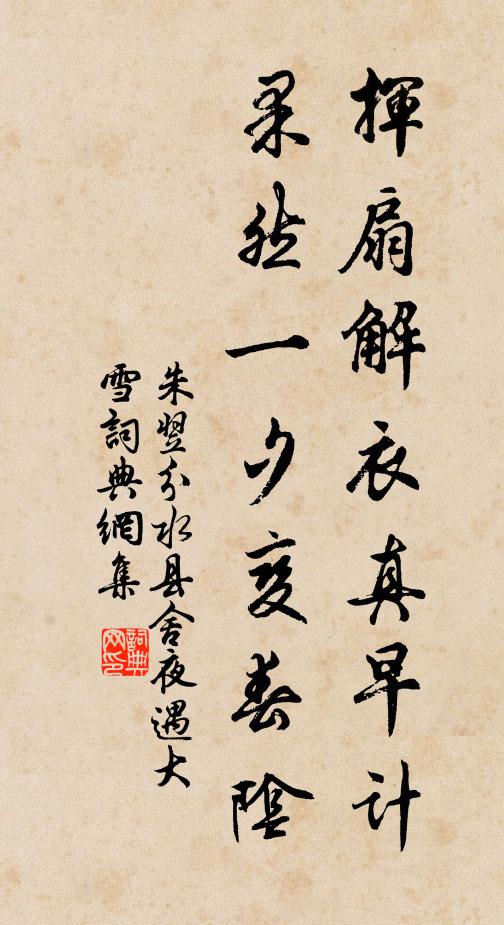 揮扇解衣真早計
果然一夕变春陰
朱翌分水县舍夜遇大
雪詞典網集
詞典网印